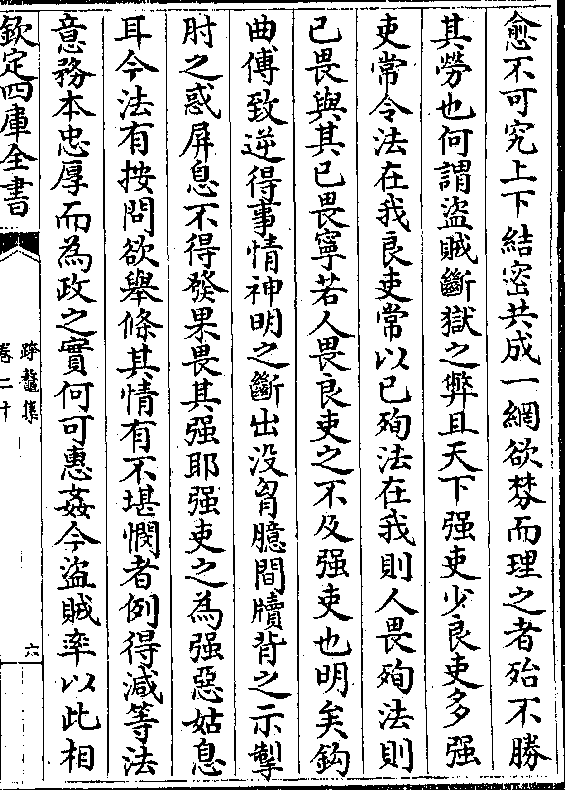 愈不可究上下結密共成一網欲棼而理之者殆不勝
其勞也何謂盜賊斷獄之弊且天下强吏少良吏多强
吏常令法在我良吏常以已殉法在我則人畏殉法則
已畏與其已畏寧若人畏良吏之不及强吏也明矣鈎
曲傅致逆得事情神明之斷出没胷臆間牘背之示掣
肘之惑屏息不得發果畏其强耶强吏之為强惡姑息
耳今法有按問欲舉條其情有不堪憫者例得減等法
意務本忠厚而為政之實何可惠姦今盜賊率以此相
欽定四庫全書
跨鼇集
卷二十
六